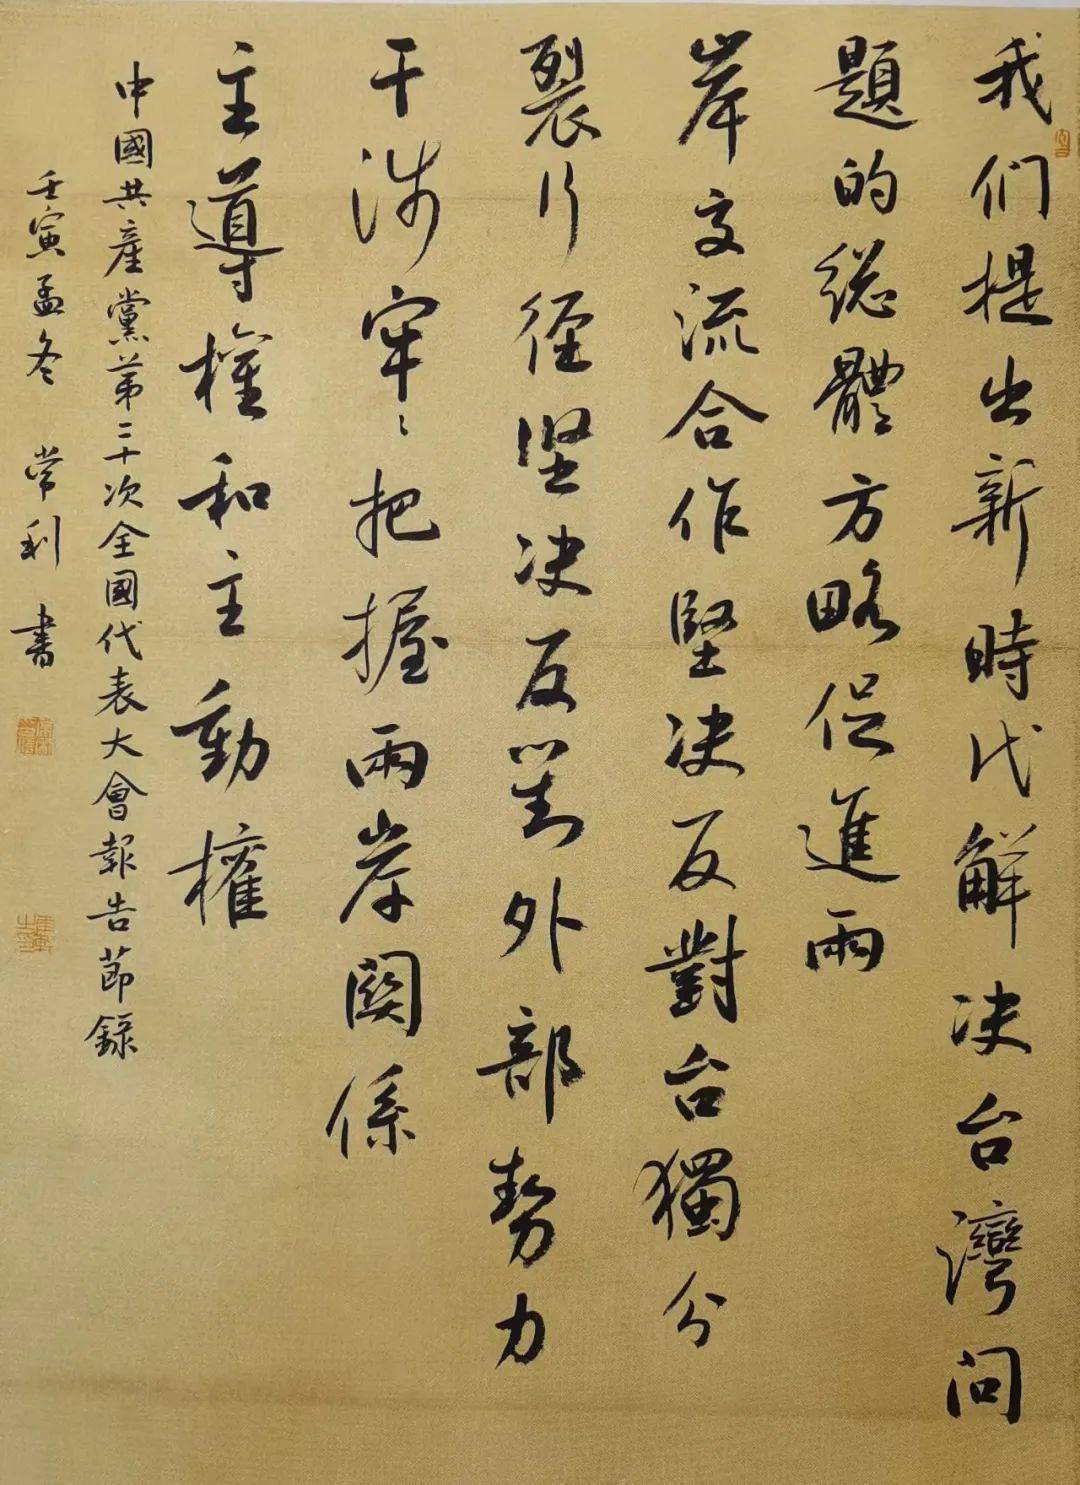 我们提出新時代解决台灣问
題的総體方略促進两
岸交流合作堅决反對台獨分
裂行径坚决反对外部势力
干涉牢牢把握两岸関係
主導權和主動權
中國共産黨第二十次全國代表大會報告節錄
壬寅孟冬 常利 書